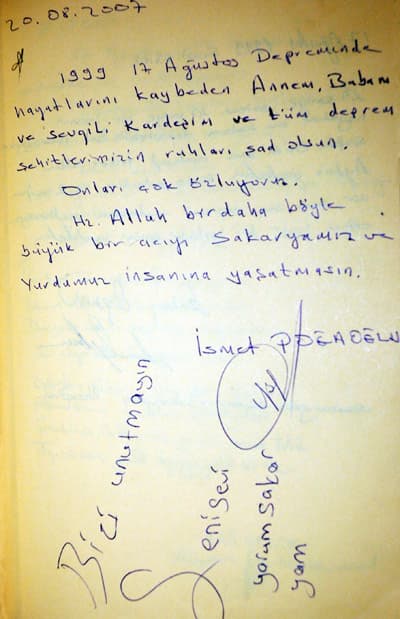 20.08.2007
1999 17 Ağustos Depreminde
hayatlarını kaybeden Annem, Babam
ve sevgili Kardeşim ve tüm deprem
şehitlerimizin ruhları şad olsun.
Onları çok özlüyoruz.
Hz. Allah birdaha böyle
büyük bir acıyı Sakaryamız ve
Yurdumuz insanına yaşatmasın.
İsmet
Bizi unutmayın
Seni sevi
yorum sakar
yam